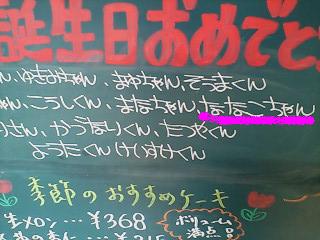 誕生日おめでと
ん、ゆきみちゃん、まゆちゃん、そうまくん
ん、こうしくん、まなちゃん、ななこちゃん
さん、かづなりくん、たつやくん
ようたくん けいすけくん
季節のおすすめケーキ
生メロン…¥368
ボリューム満点!